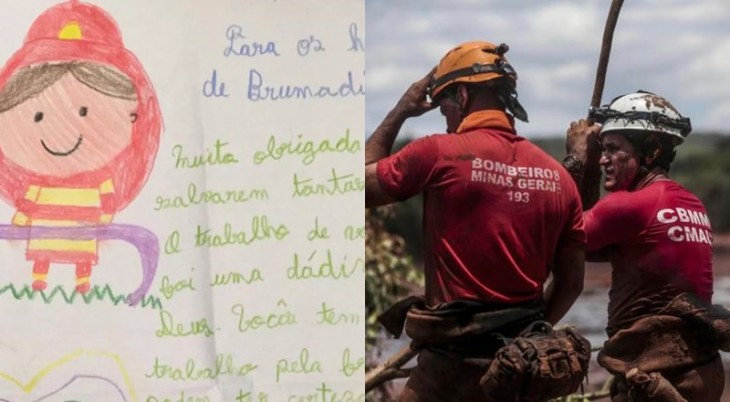 Para os h
de Brumadi
Muita obrigada
salvarem tantas
O trabalho de vo
foi uma dádi
Deus. Vocês tem
trabalho pela
podem ter certeza
BOMBEIROS
MINAS GERAIS
193
CBMM
CMAL